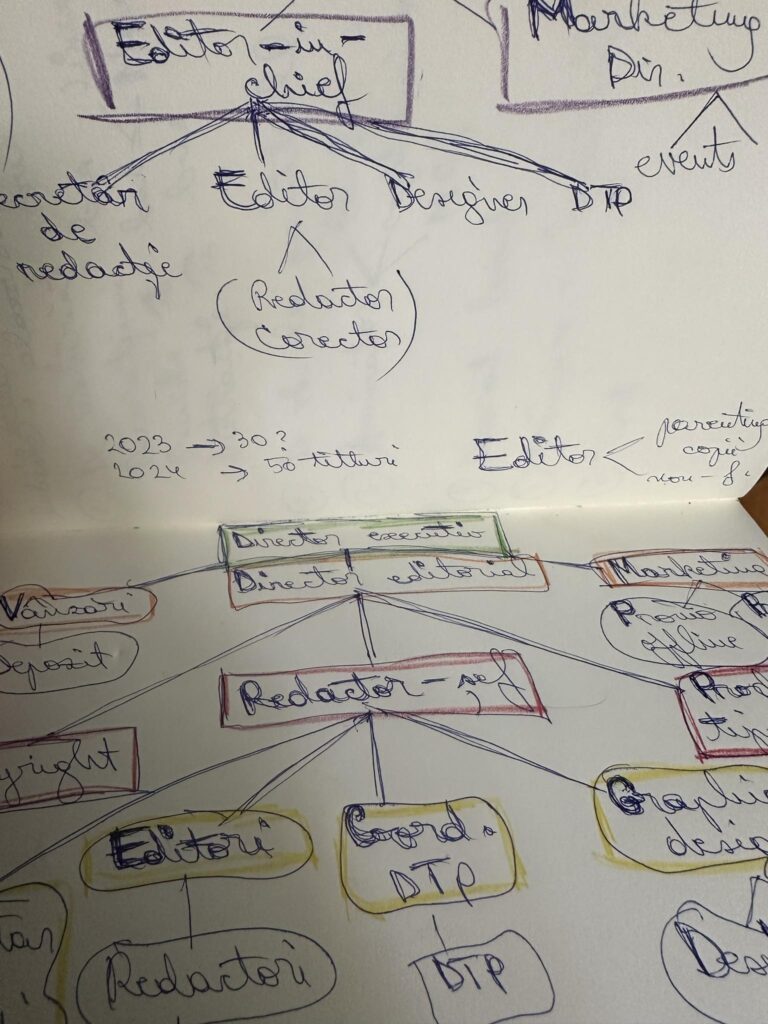 Editor-in-
chief
Marketing
Dir.
events
ecretar
de
redacție
Editor
Designer
DTP
(Redactor
Corector)
2023 → 30?
2024 → 50 titluri
Editor
parenting
copii
non-f.
Director executiv
Director editorial
Marketing
Vânzări
Depozit
Promo
offline
Redactor-șef
Prod
tip
yright
Editori
Coord.
DTP
Graphic
desig
tar
Redactori
DTP
Des